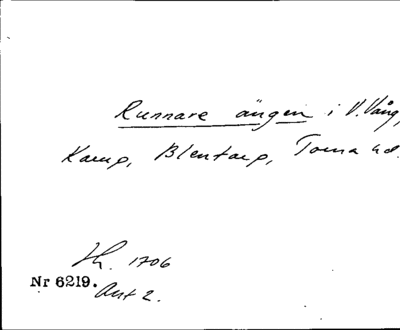 Runnare ängen i V. Vång,
Kamp, Blentarp, Torna hd.
Lh. 1706
Nr 6219.
Akt 2.